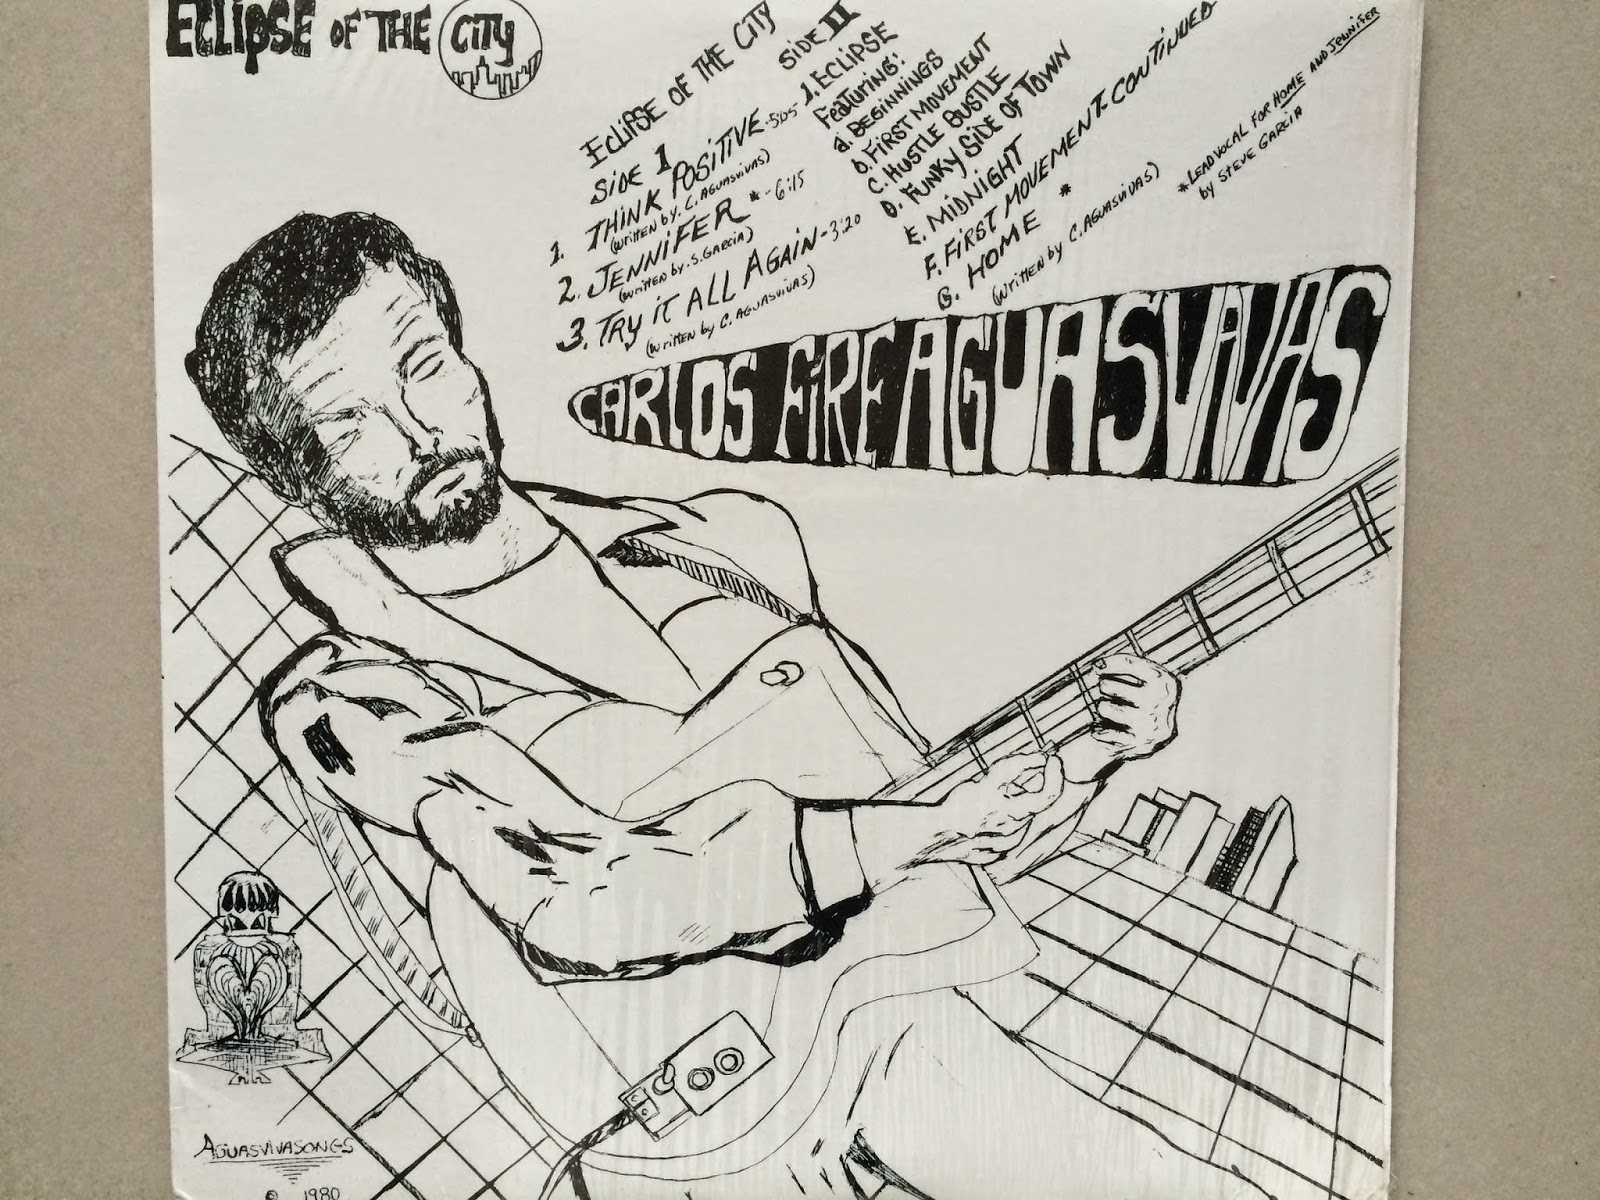 ECLIPSE OF THE CITY
ECLIPSE OF THE CITY
SIDE 1
1. THINK POSITIVE - 5:05
(written by C. AGUASVIVAS)
2. JENNIFER * - 6:15
(written by S. GARCIA)
3. TRY IT ALL AGAIN - 3:20
(written by C. AGUASVIVAS)
SIDE II
1. ECLIPSE
FEATURING:
a. BEGINNINGS
b. FIRST MOVEMENT
C. HUSTLE BUSTLE
D. FUNKY SIDE OF TOWN
E. MIDNIGHT
F. FIRST MOVEMENT-CONTINUED
G. HOME *
(written by C. AGUASVIVAS)
*LEAD VOCAL FOR HOME AND JENNIFER
by STEVE GARCIA
CARLOS FIRE AGUASVIVAS
AGUASVIVASONGS
© 1980